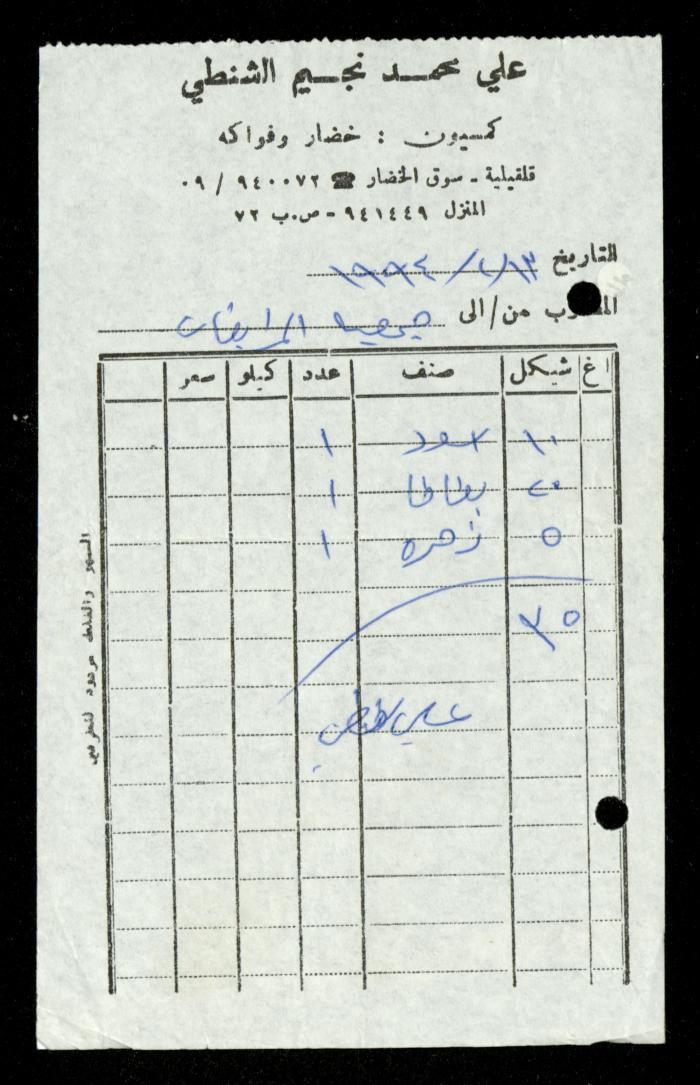 علي محمد نجيم الشنطي
كمسيون : خضار وفواكه
قلقيلية - سوق الخضار ☎ ٩٤٠٠٧٢ / ٠٩
المنزل ٩٤١٤٤٩ - ص.ب ٧٢
التاريخ ١٣/٢/١٩٩٤
المطلوب من/الى جمعية المرابطات
اغ شيكل صنف عدد كيلو سعر
١٠ اسود ١
٢٠ بطاطا ١
٥ زهره ١
٣٥
علي الشنطي
السهو والغلط مردود للطرفين